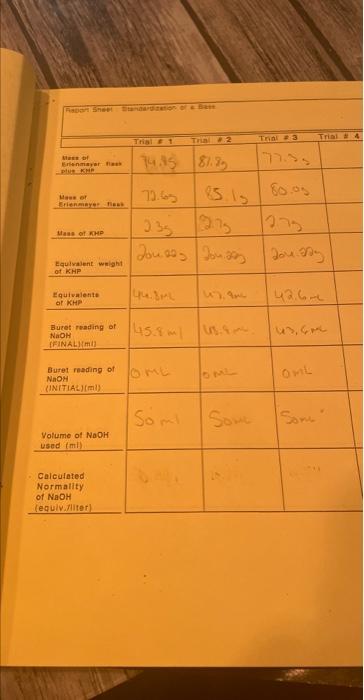 Report Sheet Standardization of a Base
Trial # 1 Trial # 2 Trial # 3 Trial # 4
Mass of Erlenmeyer flask plus KHP 87.8g
Mass of Erlenmeyer flask 72.6g 85.1g 80.0g
Mass of KHP 2.7g 2.7g
Equivalent weight of KHP 204.22g 204.22g 204.22g
Equivalents of KHP 42.6mL
Buret reading of NaOH (FINAL)(ml) 45.8 ml
Buret reading of NaOH (INITIAL)(ml) 0 mL 0 mL 0 mL
Volume of NaOH used (ml) 50 ml 50mL 50mL
Calculated Normality of NaOH (equiv./liter)